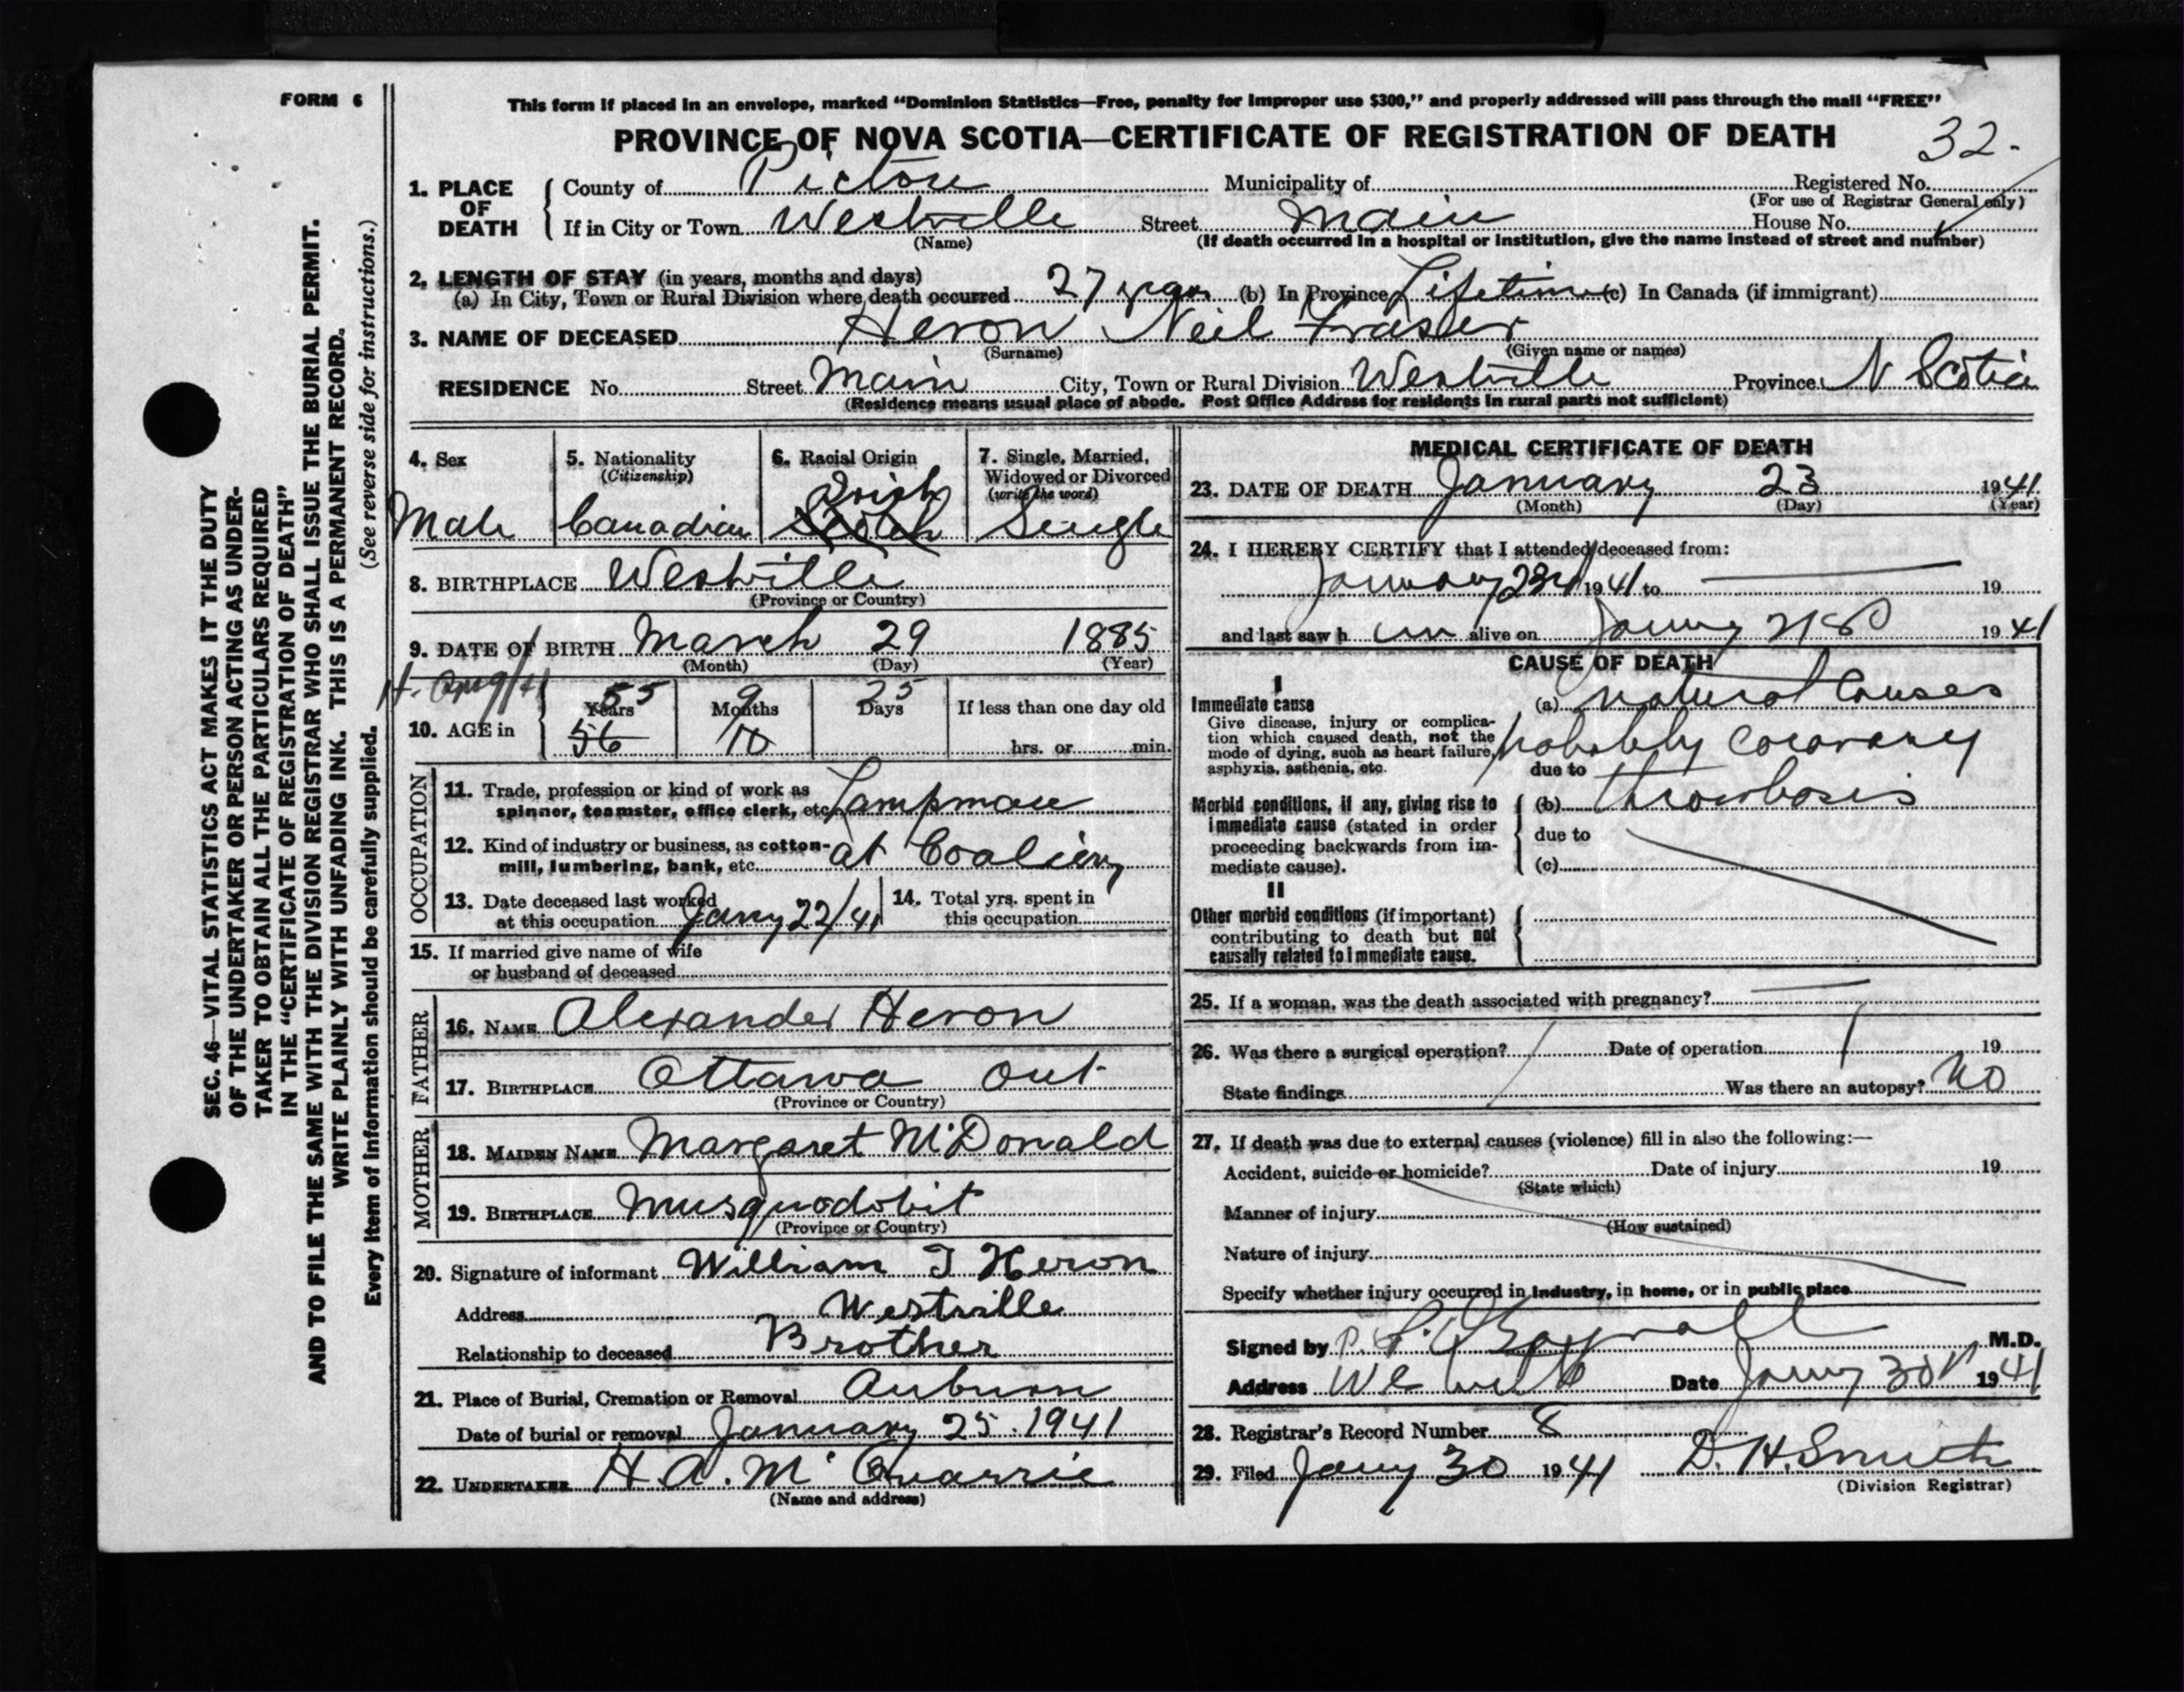 FORM 6
This form if placed in an envelope, marked "Dominion Statistics—Free, penalty for improper use $300," and properly addressed will pass through the mail "FREE"
PROVINCE OF NOVA SCOTIA—CERTIFICATE OF REGISTRATION OF DEATH
32.
1. PLACE OF DEATH
County of Pictou Municipality of Registered No.
(For use of Registrar General only)
If in City or Town Westville Street Main House No.
(Name) (If death occurred in a hospital or institution, give the name instead of street and number)
2. LENGTH OF STAY (in years, months and days)
(a) In City, Town or Rural Division where death occurred 27 years (b) In Province Lifetime (c) In Canada (if immigrant)
3. NAME OF DECEASED Heron Neil Fraser
(Surname) (Given name or names)
RESIDENCE No. Street Main City, Town or Rural Division Westville Province N Scotia
(Residence means usual place of abode. Post Office Address for residents in rural parts not sufficient)
4. Sex
Male
5. Nationality
(Citizenship)
Canadian
6. Racial Origin
Irish
Scotch
7. Single, Married,
Widowed or Divorced
(write the word)
Single
8. BIRTHPLACE Westville
(Province or Country)
9. DATE OF BIRTH March 29 1885
(Month) (Day) (Year)
10. AGE in
55 9 25
Years Months Days If less than one day old
56 10 hrs. or min.
OCCUPATION
11. Trade, profession or kind of work as
spinner, teamster, office clerk, etc. Lampman
12. Kind of industry or business, as cotton-
mill, lumbering, bank, etc. at Coaliery
13. Date deceased last worked
at this occupation Jany 22/41
14. Total yrs. spent in
this occupation
15. If married give name of wife
or husband of deceased
FATHER
16. NAME Alexander Heron
17. BIRTHPLACE Ottawa Ont
(Province or Country)
MOTHER
18. MAIDEN NAME Margaret McDonald
19. BIRTHPLACE Musquodobit
(Province or Country)
20. Signature of informant William J Heron
Address Westville
Relationship to deceased Brother
21. Place of Burial, Cremation or Removal Auburn
Date of burial or removal January 25. 1941
22. UNDERTAKER H. A. Mc Quarrie
(Name and address)
MEDICAL CERTIFICATE OF DEATH
23. DATE OF DEATH January 23 1941
(Month) (Day) (Year)
24. I HEREBY CERTIFY that I attended deceased from:
January 23rd 1941 to 19
and last saw h im alive on Jany 1941
CAUSE OF DEATH
I
Immediate cause
Give disease, injury or complica-
tion which caused death, not the
mode of dying, such as heart failure,
asphyxia, asthenia, etc.
(a) natural Causes
probably coronary
due to
Morbid conditions, if any, giving rise to
immediate cause (stated in order
proceeding backwards from im-
mediate cause).
(b) thrombosis
due to
(c)
II
Other morbid conditions (if important)
contributing to death but not
causally related to immediate cause.
25. If a woman, was the death associated with pregnancy?
26. Was there a surgical operation? Date of operation 19
State findings Was there an autopsy? No
27. If death was due to external causes (violence) fill in also the following:—
Accident, suicide or homicide? Date of injury 19
(State which)
Manner of injury
(How sustained)
Nature of injury
Specify whether injury occurred in industry, in home, or in public place
Signed by M.D.
Address Westville Date Jany 30 1941
28. Registrar's Record Number 8
29. Filed Jany 30 1941 D. H. Smith
(Division Registrar)
SEC. 46—VITAL STATISTICS ACT MAKES IT THE DUTY
OF THE UNDERTAKER OR PERSON ACTING AS UNDER-
TAKER TO OBTAIN ALL THE PARTICULARS REQUIRED
IN THE "CERTIFICATE OF REGISTRATION OF DEATH"
AND TO FILE THE SAME WITH THE DIVISION REGISTRAR WHO SHALL ISSUE THE BURIAL PERMIT.
WRITE PLAINLY WITH UNFADING INK. THIS IS A PERMANENT RECORD.
Every item of information should be carefully supplied. (See reverse side for instructions.)